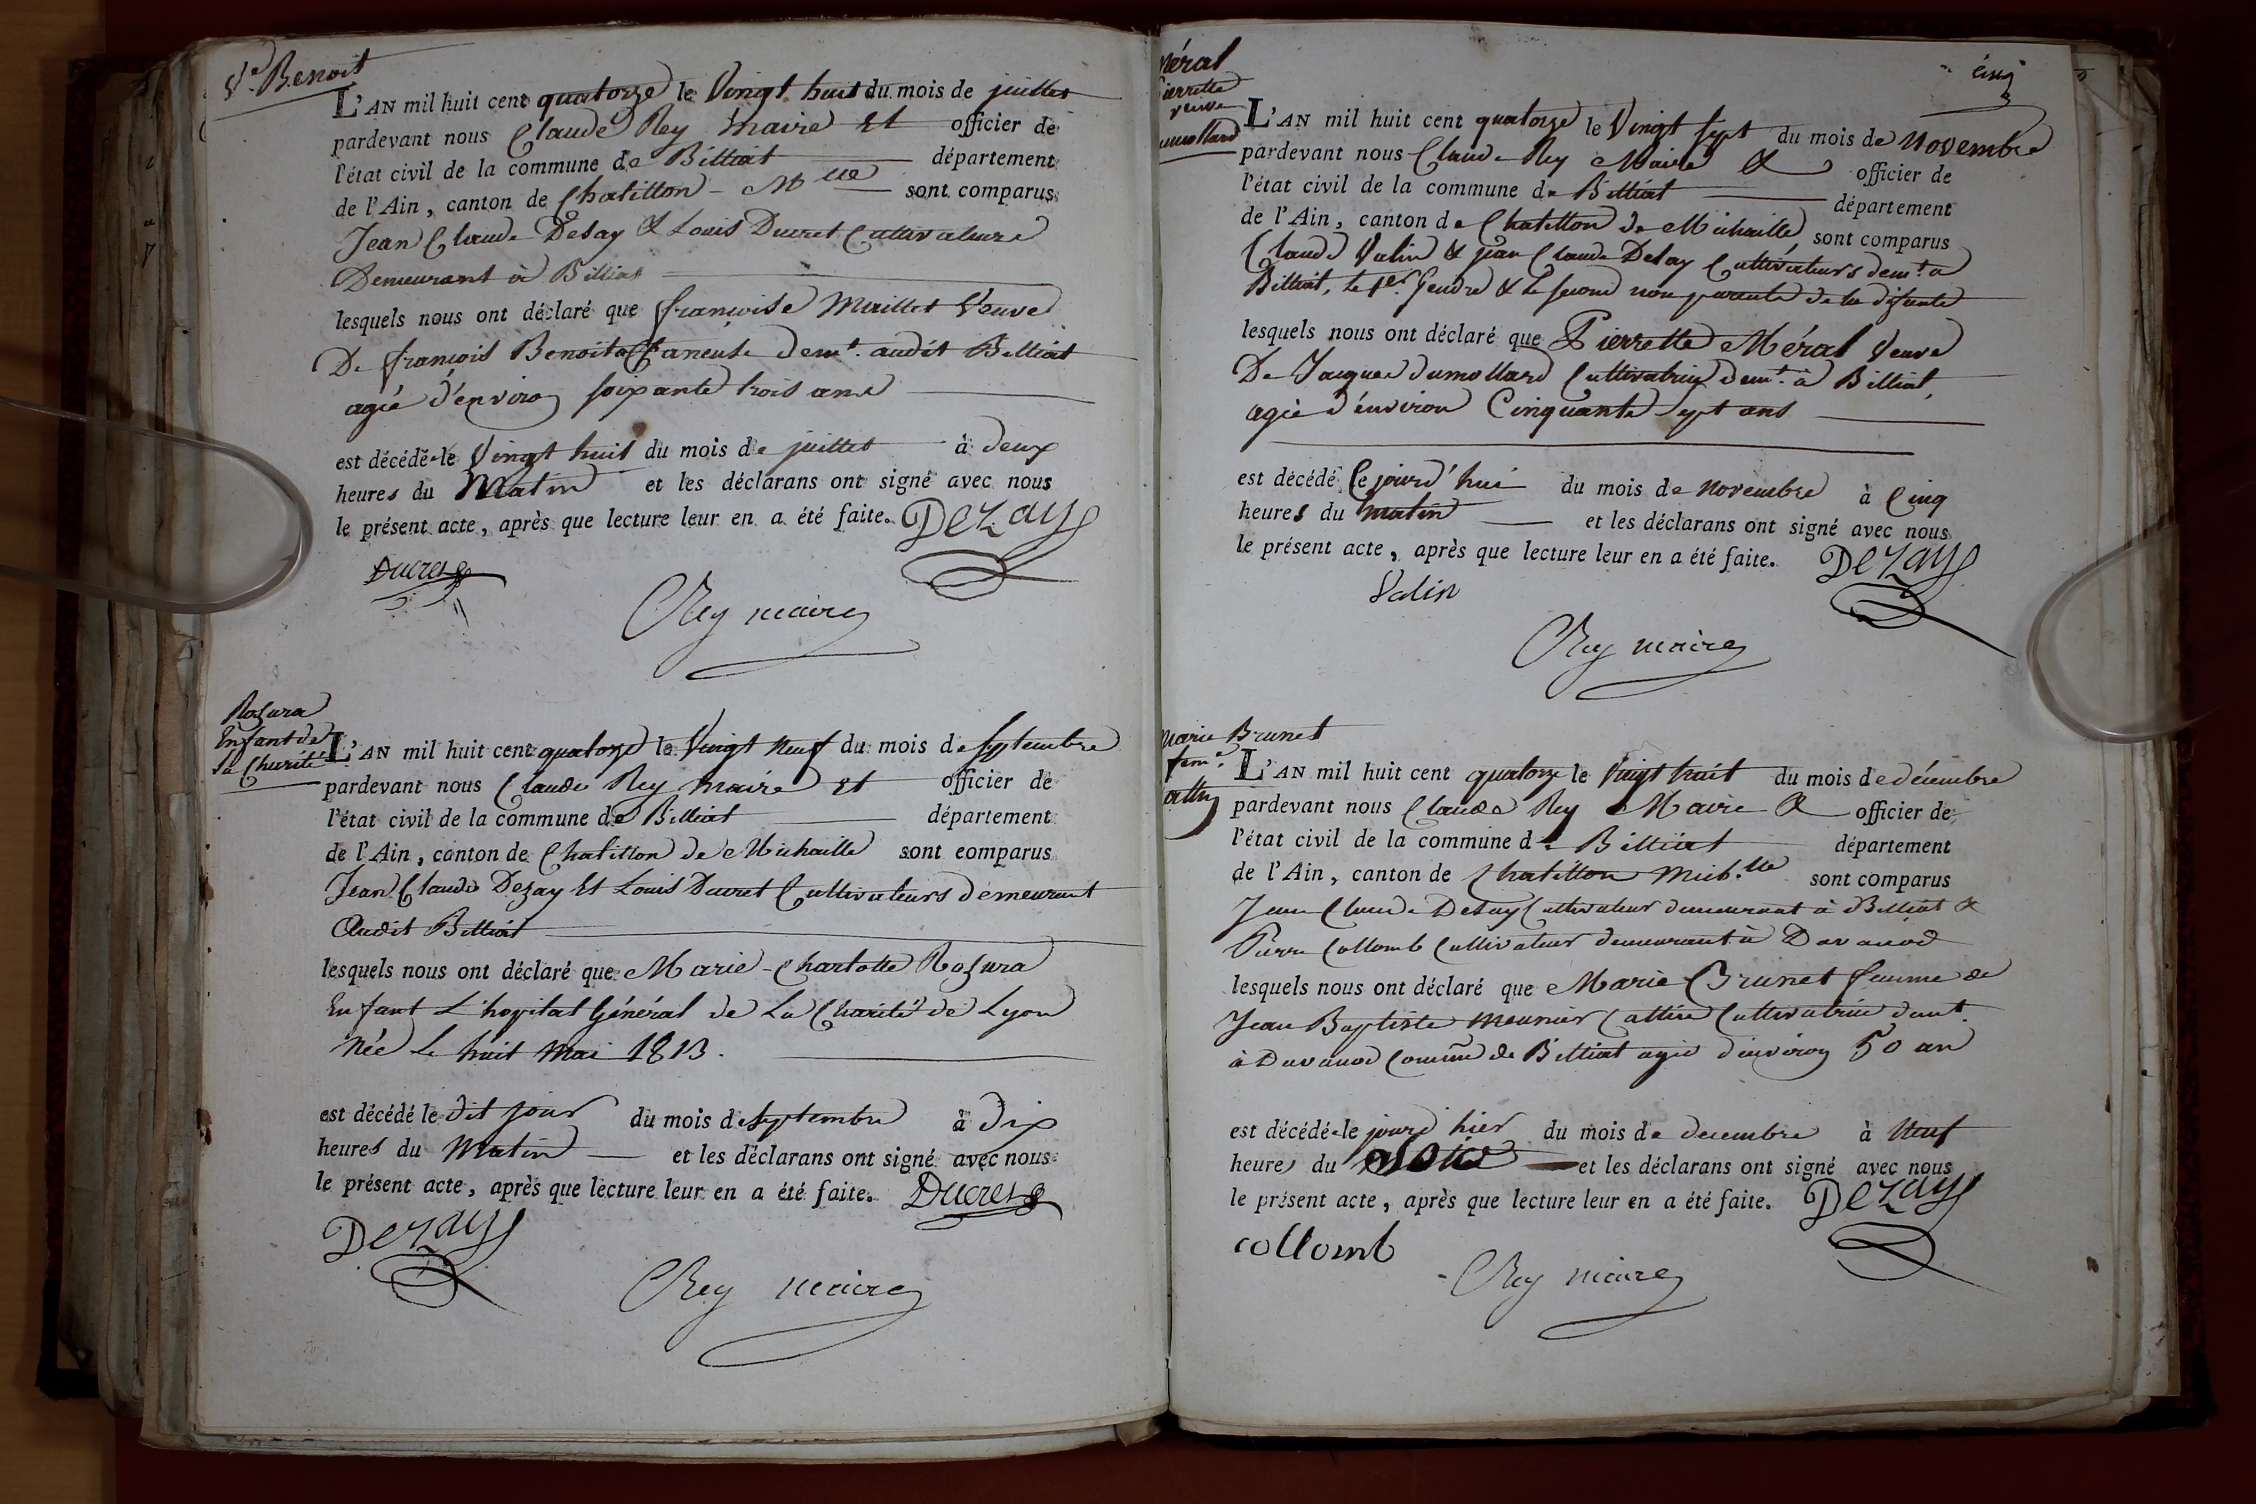 Ve. Benoit
L'AN mil huit cent quatorze le Vingt huit du mois de juillet
pardevant nous Claude Rey maire et officier de
l'état civil de la commune de Billiat département
de l'Ain, canton de Chatillon - Mlle sont comparus
Jean Claude Desay & Louis Ducret Cultivateurs
Demeurant à Billiat
lesquels nous ont déclaré que françoise Maillet Veuve
De françois Benoit demt. audit Billiat
agée d'environ soixante trois ans
est décédé le Vingt huit du mois de juillet à deux
heures du Matin et les déclarans ont signé avec nous
le présent acte, après que lecture leur en a été faite. DEZAY
Ducret
Rey maire
Rosura
Enfant de
la Charité
L'AN mil huit cent quatorze le Vingt neuf du mois de Septembre
pardevant nous Claude Rey maire et officier de
l'état civil de la commune de Billiat département
de l'Ain, canton de Chatillon de Michaille sont comparus
Jean Claude Dezay Et Louis Ducret Cultivateurs demeurant
Audit Billiat
lesquels nous ont déclaré que Marie-Charlotte Rosura
Enfant L'hopital Général de La Charité de Lyon
Née Le huit Mai 1813.
est décédé le dit jour du mois de Septembre à dix
heures du Matin et les déclarans ont signé avec nous
le présent acte, après que lecture leur en a été faite. Ducret
DEZAY
Rey maire
cinq
Méral
Pierrette
veuve
Dumollard
L'AN mil huit cent quatorze le Vingt Sept du mois de Novembre
pardevant nous Claude Rey Maire & officier de
l'état civil de la commune de Billiat département
de l'Ain, canton de Chatillon de Michaille sont comparus
Claude Valin & jean Claude Desay Cultivateurs demt. a
Billiat, le 1er. Gendre & le second non parent de la défunte
lesquels nous ont déclaré que Pierrette Méral Veuve
De Jacques dumollard Cultivatrice demt. à Billiat,
agée d'environ Cinquante sept ans
est décédé Ce jourd'hui du mois de Novembre à Cinq
heures du matin et les déclarans ont signé avec nous
le présent acte, après que lecture leur en a été faite. DEZAY
Valin
Rey maire
Marie Brunet
feme.
L'AN mil huit cent quatorze le Vingt huit du mois de décembre
pardevant nous Claude Rey Maire & officier de
l'état civil de la commune de Billiat département
de l'Ain, canton de Chatillon Mich.lle sont comparus
Jean Claude Desay Cultivateur demeurant à Billiat &
Pierre Collomb Cultivateur demeurant à Davanod
lesquels nous ont déclaré que Marie Brunet femme de
Jean Baptiste Meunier Cultivatrice demt.
à Davanod Commne de Billiat agée d'environ 50 an
est décédé le jourd hier du mois de decembre à Neuf
heures du Soir et les déclarans ont signé avec nous
le présent acte, après que lecture leur en a été faite. DEZAY
Collomb
Rey maire